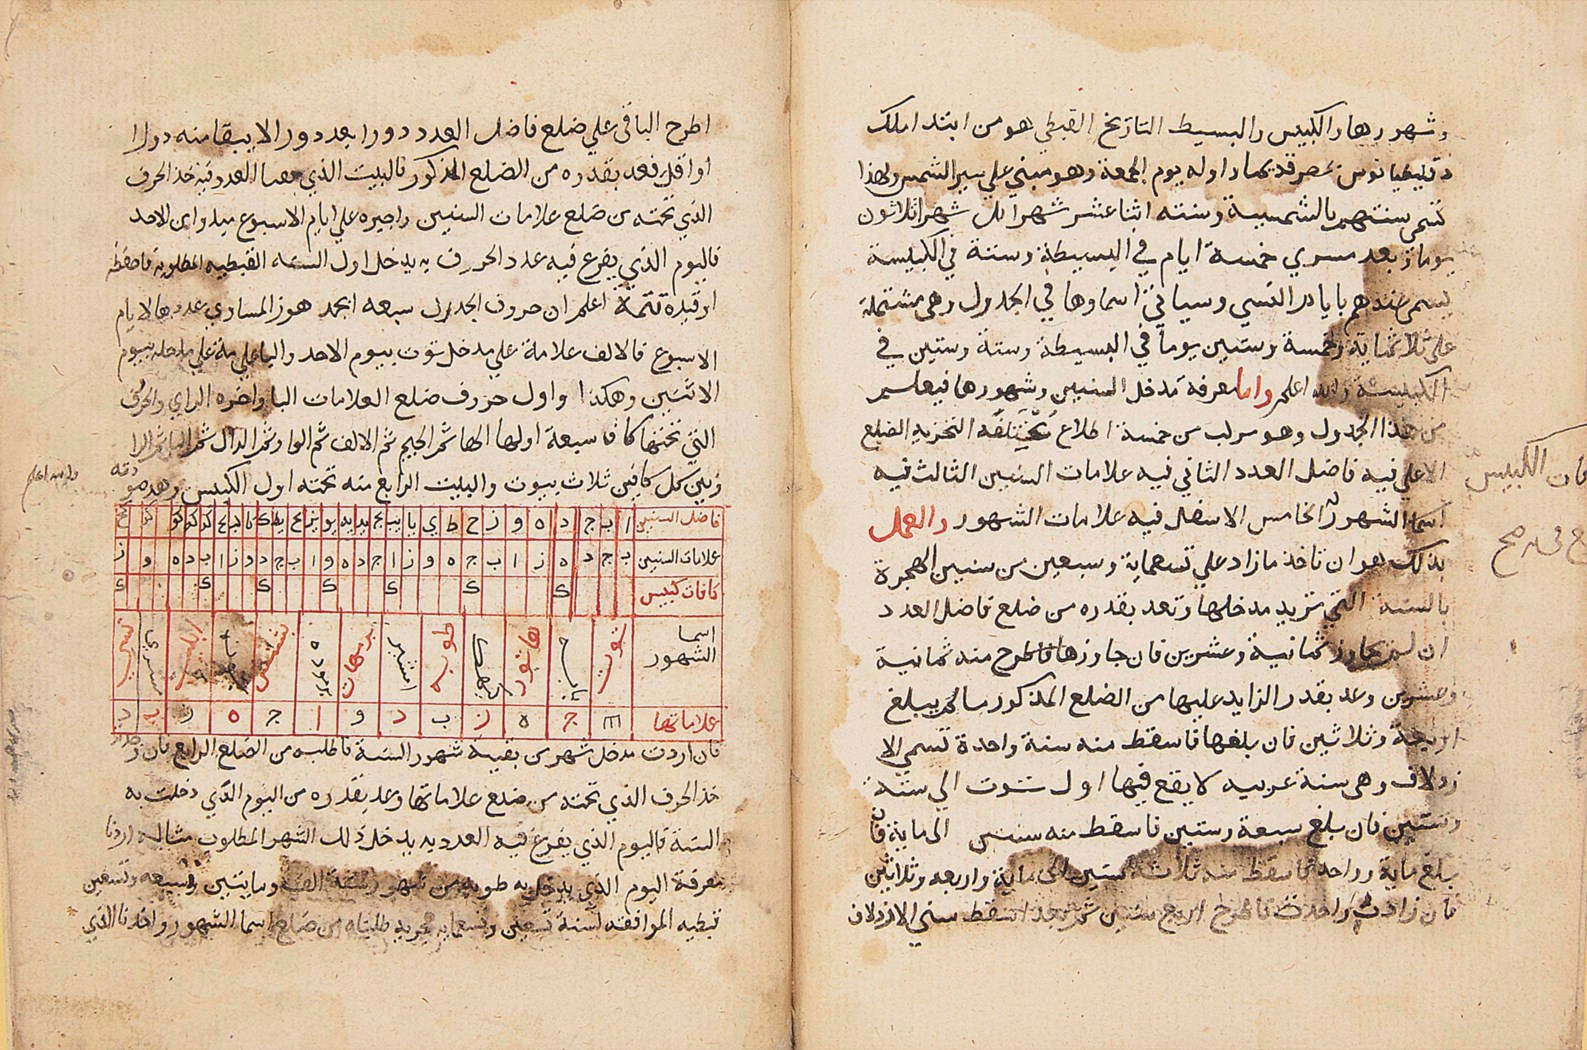 وشهورها والكبيس والبسيط التاريخ القبطي هو من ابتدا ملك
دقليطيانوس بمصر قديما واوله يوم الجمعة وهو مبني علي سير الشمس ولهذا
تسمي سنتهم بالشمسية وسنته اثنا عشر شهرا كل شهر ثلاثون
يوما زبعد مسري خمسة ايام في البسيطة وستة في الكبيسة
يسمي عندهم بايام النسي وسياتي اسماوها في الجدول وهي مشتملة
علي ثلاثماية وخمسة وستين يوماً في البسيطة وستة وستين في
الكبيسة والله اعلم واما معرفة مدخل السنين وشهورها فيعلم
من هذا الجدول وهو مركب من خمسة اضلاع مختلفة التحزيه الضلع
الاعلي فيه فاضل العدد الثاني فيه علامات السنين الثالث فيه
اسما الشهور الخامس الاسفل فيه علامات الشهور والعمل
بذلك هو ان تاخذ ما زاد علي تسعماية وسبعين من سنين الهجرة
بالسنة التي تريد مدخلها وتعد بقدره من ضلع فاضل العدد
ان لم يجاوز ثمانية وعشرين فان جاوزها فاطرح منه ثمانية
وعشرين وعد بقدر الزايد عليها من الضلع المذكور ما لم يبلغ
اربعة وثلاثين فان بلغها فاسقط منه سنة واحدة تسمي الا
زدلاف وهي سنة عربيه لا يقع فيها اول توت الي ستة
وستين فان بلغ سبعة وستين فاسقط منه سنتين الي ماية فان
بلغ ماية وواحد فاسقط منه ثلاث سنين الي ماية واربعه وثلاثين
فان زادت واحدة فاطرح اربع سنين ثم بعد اسقط سني الازدلاف
فان الكبيس
اطرح الباقي علي ضلع فاضل العدد دورا بعد دور الا يبقا منه دورا
او اقل فعد بقدره من الضلع المذكور فالبيت الذي العدد فيه خذ الحرف
الذي تحته من ضلع علامات السنين واجره علي ايام الاسبوع مبدوا من الاحد
فاليوم الذي يفرغ فيه عدد الحرف به يدخل اول السنه القبطيه المطلوبه فاحفظه
او قيده تتمة اعلم ان حروف الجدول سبعه ابجد هوز المساوي عددها لايام
الاسبوع فالالف علامة علي مدخل توت بيوم الاحد والبا علامة علي مدخله بيوم
الاثنين وهكذا واول حروف ضلع العلامات البا واخره الزاي والحروف
التي تحتها كافا سبعة اولها الها ثم الجيم ثم الالف ثم الواو ثم الدال ثم البا ثم الزا
وبين كل كافين ثلاث بيوت والبيت الرابع منه تحته اول الكبيس وهذه صورته
والله اعلم
فاضل السنين ا ب ج د ه و ز ح ط ي يا يب يج يد يه يو يز يح يط ك كا كب كج كد كه كو كز كح
علامات السنين ب ج د ه ز ا ب ج ه و ز ا ج د ه و ا ب ج د و ز ا ب د ه و ز
كافات كبيس ك ك ك ك ك ك ك
اسما الشهور توت بابه هاتور كيهك طوبه امشير برمهات برموده بشنس بونه ابيب مسري نسي
علاماتها ج ه ز ب د و ا ج ه ز ب د
فان اردت مدخل شهر من بقية شهور السنة فاطلبه من الضلع الرابع فان وجدته
خذ الحرف الذي تحته من ضلع علاماتها وعد بقدره من اليوم الذي دخلت به
السنة فاليوم الذي يفرغ فيه العدد به يدخل ذلك الشهر المطلوب مثاله اردنا
معرفة اليوم الذي يدخل به طوبه من شهور سنة الف ومايتين وسبعه وتسعين
قبطيه الموافقه لسنة تسعين وتسعمايه هجريه طلبناه من ضلع اسما الشهور واخذنا الذي